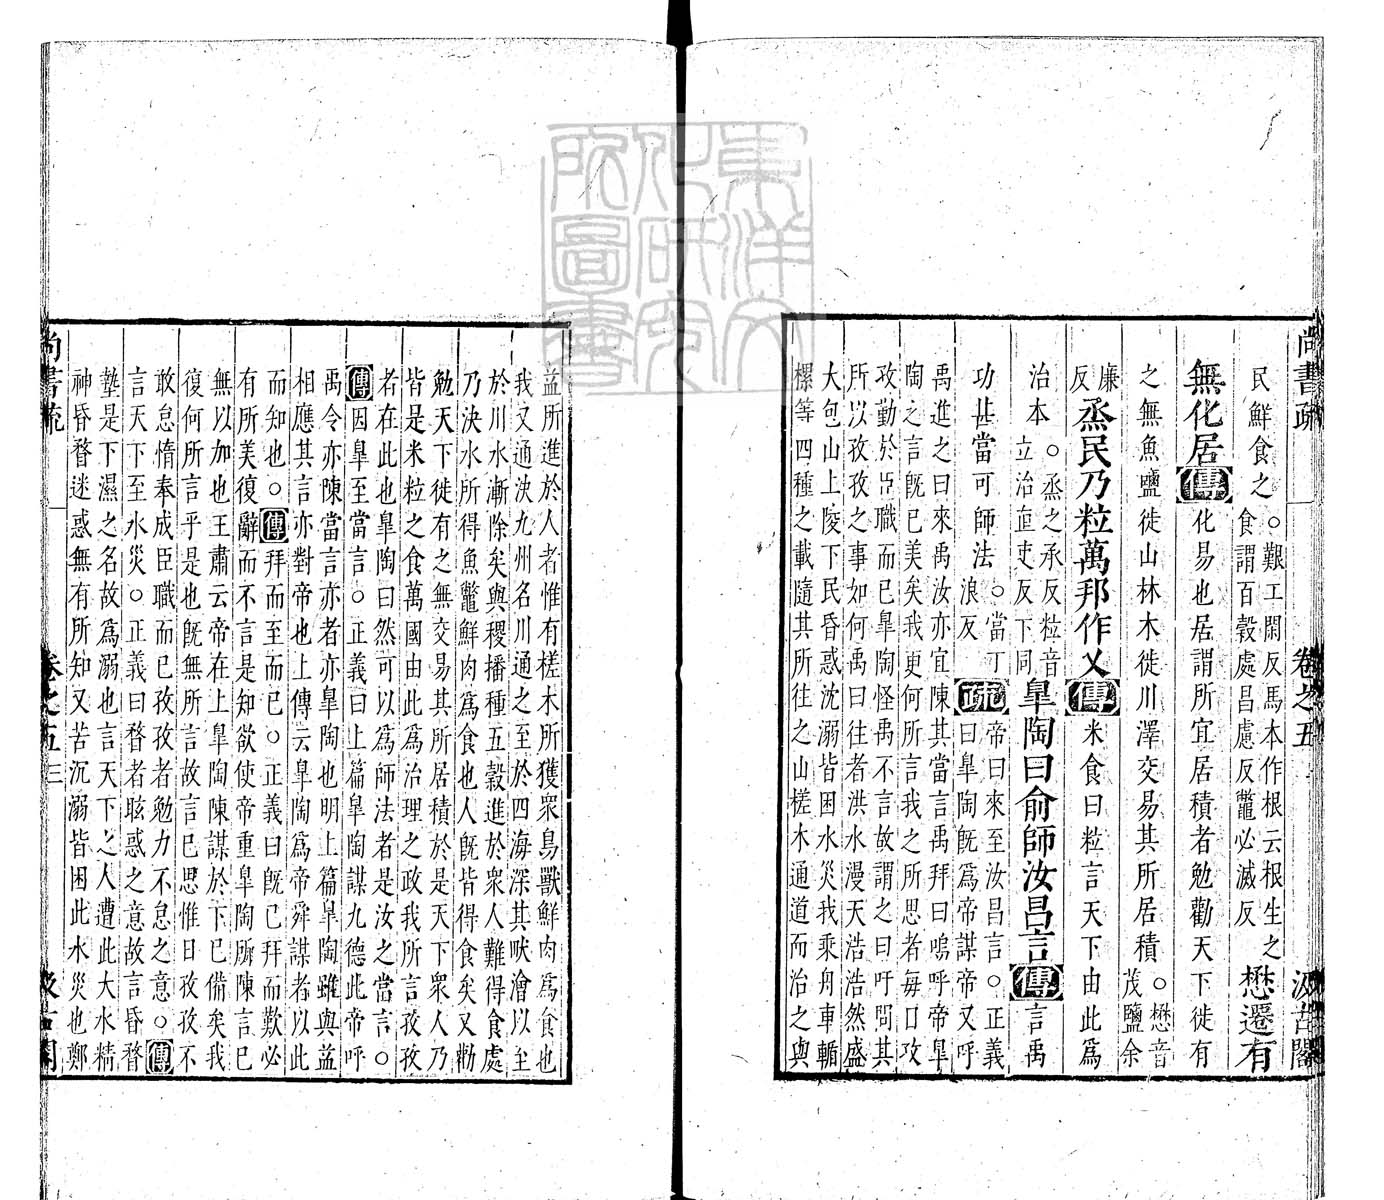 尚書疏　卷之五　汲古閣
民鮮食之　○艱工閑反馬本作根云根生之
食謂百穀處昌慮反鼈必滅反　懋遷有
無化居傳化易也居謂所宜居積者勉勸天下徙有
之無魚鹽徙山林木徙川澤交易其所居積　○懋音
茂鹽余
廉
反　烝民乃粒萬邦作乂傳米食曰粒言天下由此爲
治本　○烝之承反粒音
立治直吏反下同　皐陶曰俞師汝昌言傳言禹
功甚當可師法　○當丁
浪反　疏帝曰來至汝昌言○正義
曰皐陶旣爲帝謀帝又呼
禹進之曰來禹汝亦宜陳其當言禹拜曰嗚呼帝皐
陶之言旣已美矣我更何所言我之所思者每日孜
政勤於臣職而已皐陶怪禹不言故謂之曰吁問其
所以孜孜之事如何禹曰往者洪水漫天浩浩然盛
大包山上陵下民昏惑沈溺皆困水災我乘舟車輴
樏等四種之載隨其所往之山槎木通道而治之與
益所進於人者惟有槎木所獲衆鳥獸鮮肉爲食也
我又通決九州名川通之至於四海深其畎澮以至
於川水漸除矣與稷播種五穀進於衆人難得食處
乃決水所得魚鼈鮮肉爲食也人旣皆得食矣又勸
勉天下徙有之無交易其所居積於是天下衆人乃
皆是米粒之食萬國由此爲治理之政我所言孜孜
者在此也皐陶曰然可以爲師法者是汝之當言○
傳因皐至當言○正義曰上篇皐陶謀九德此帝呼
禹令亦陳當言亦者亦皐陶也明上篇皐陶雖與益
相應其言亦對帝也上傳云皐陶爲帝舜謀者以此
而知也○傳拜而至而已○正義曰旣已拜而歎必
有所美復辭而不言是知欲使帝重皐陶所陳言已
無以加也王肅云帝在上皐陶陳謀於下已備矣我
復何所言乎是也旣無所言故言已思惟日孜孜不
敢怠惰奉成臣職而已孜孜者勉力不怠之意○傳
言天下至水災○正義曰瞀者眩惑之意故言昏瞀
墊是下濕之名故爲溺也言天下之人遭此大水精
神昏瞀迷惑無有所知又苦沉溺皆困此水災也鄭
尚書疏　卷之五　三　汲古閣
東洋文
化研究
所圖書